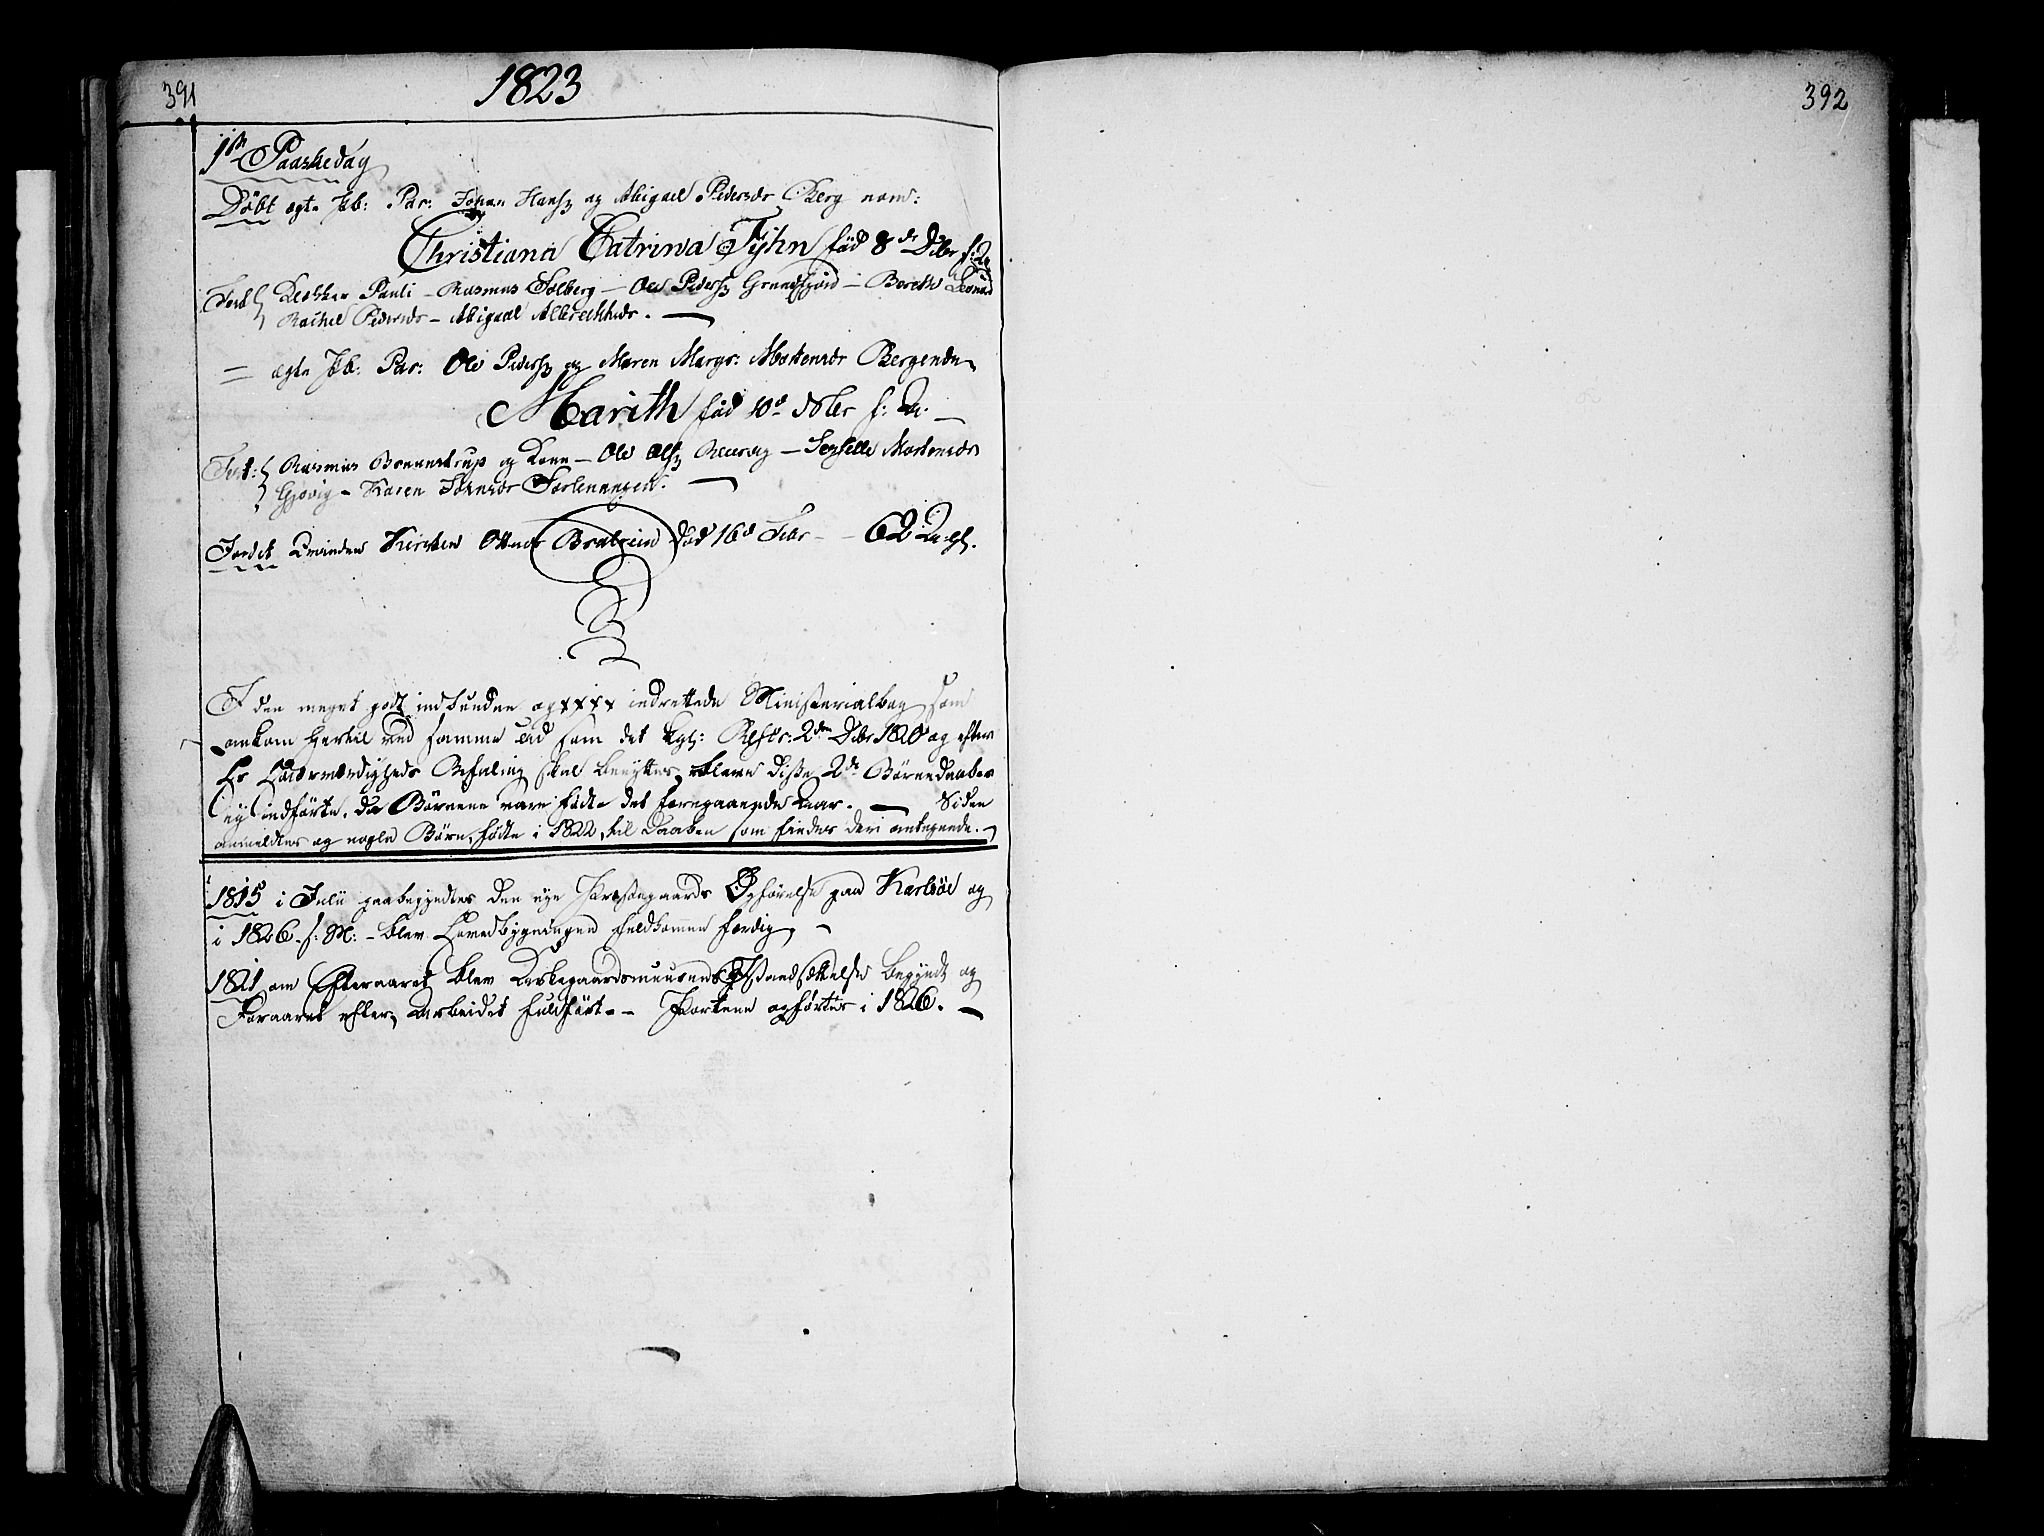 391
1823
392
1ste Paaskedag
Döbt ægte Fb: Par: Johan Hans og Abigael Pedersdr Berg navn:
Christiana Catrina Fyhn föd 8de Dbr f: A
Test Klokker Pauli – Rasmus Solberg – Ole Peders Grundfjord – Bereth
Rachel Pedersdr – Abigael Albrethsdr. –
= ægte Fb: Par: Ole Peders og Maren Margr: Mortensdr Bergende
Marith föd 10de Nbr f: Aa. –
Test: Rasmus Bonnestrup og Kone – Ole Ols – Mortensdr
Gjövig – Karen Johnsdr
Jordet Qvinden Kirsten Ottesdr död 16de Febr – 62 Aar gl.
I den meget godt indbundne og xxxx indrettede Ministerialbog, som
ankom hertil ved samme Tid som det kgl: Rescr: 2den Dbr 1820 og efter
Hs Höiærværdigheds Befaling skal benyttes, bleve disse 2de Börnedaaber
ey indförte, da Börnene vare födte det foregaaende Aar. – Siden
anmeldtes og nogle Börn, födte i 1822, til Daaben som findes deri antegnede. –
1815 i Julii paabegyndtes den nye Præstegaards Opförelse paa Karlsöe og
i 1826 f: M: – blev Hovedbygningen fuldkommen færdig. –
1821 om Efteraaret blev Kirkegaardsmuurens Istandsættelse begyndt og
Foraaret efter, Arbeidet fuldfört. – Portene opförtes i 1826. –